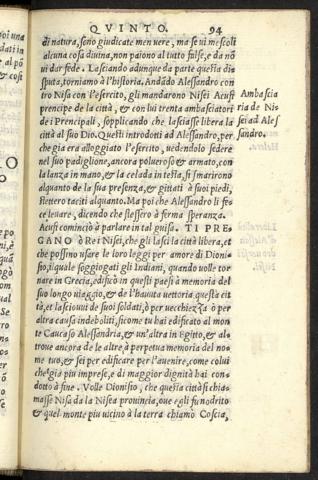 QVINTO. 94
di natura, sono giudicate men vere, ma se vi mescoli
alcuna cosa divina, non paiono al tutto false, e da nō
vi dar fede. Lasciando adunque da parte questa dis
puta, torniamo à l'historia. Andādo Alessandro con
tro Nisa con l'esercito, gli mandarono Nisei Acuf
prencipe de la città, & con lui trenta ambasciatori
de i Principali, sopplicando che lasciasse libera la
città al suo Dio. Questi introdotti ad Alessandro, per
che gia era alloggiato l'esercito, vedendolo sedere
nel suo padiglione, ancora polueroso & armato, con
la lanza in mano, & la celada in testa, si smarirono
alquanto de la sua presenza, & gittati à suoi piedi,
stettero taciti alquanto. Ma poi che Alessandro li fe
ce leuare, dicendo che stessero à ferma speranza.
Acufi cominciò à parlare in tal guisa. TI PRE
GANO ò Re i Nisei, che gli lasci la città libera, et
che possino usare le loro leggi per amore di Dioni-
sio, ilquale soggiogati gli Indiani, quando volle tor
nare in Grecia, edificò in questi paesi à memoria del
suo longo viaggio, & de l'havuta vettoria, questa cit
tà, et lasciovvi de suoi soldati, ò per vecchiezza ò per
altra causa indeboliti, si come tu hai edificato al mon
te Caucaso Alessandria, & un'altra in Egitto, & al-
troue ancora de le altre à perpetua memoria del no
me tuo, & sei per edificare per l'auenire, come colui
che gia piu imprese, e di maggior dignità hai con
dotto à fine. Volle Dionisio, che questa città si chia-
masse Nisa da la Nisea provincia, oue egli fu nodrito
& quel monte piu vicino à la terra chiamò Coscia,
Ambascia
ria de Ni
sei ad Ales
sandro.